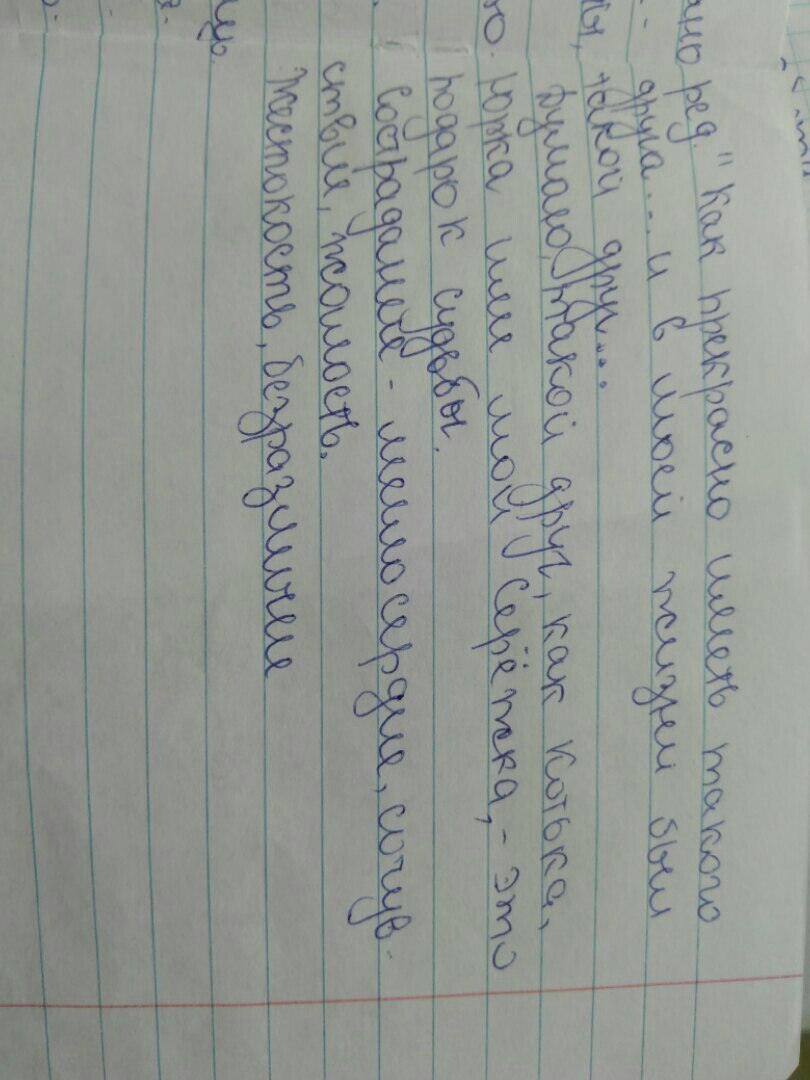 ред. "Как прекрасно иметь такого
друга... и в моей жизни был
такой друг...
Думаю, такой друг, как Котька,
Юрка или мой Серёжка, - это
подарок судьбы.
Сострадание - милосердие, сочув-
ствие, жалость.
Жестокость, безразличие